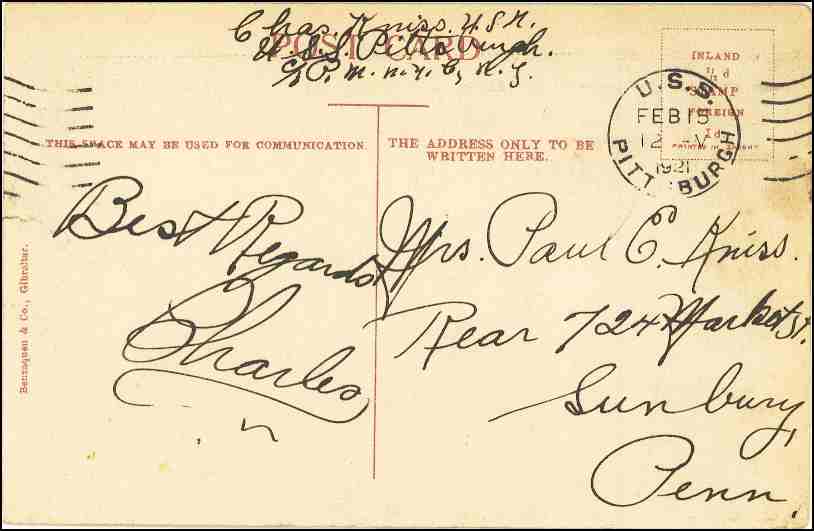 Chas. Kniss. U.S.N.
POST CARD
U.S.S. Pittsburgh.
c/o P. M. N. Y. C, N. Y.
INLAND
½ d
STAMP
FOREIGN
1d
U.S.S.
FEB 15
12 -M
1921
PITTSBURGH
THIS SPACE MAY BE USED FOR COMMUNICATION.
THE ADDRESS ONLY TO BE
WRITTEN HERE.
Best Regards
Charles
Mrs. Paul C. Kniss.
Rear 724 Market St.
Sunbury,
Penn.
Benzaquen & Co., Gibraltar.